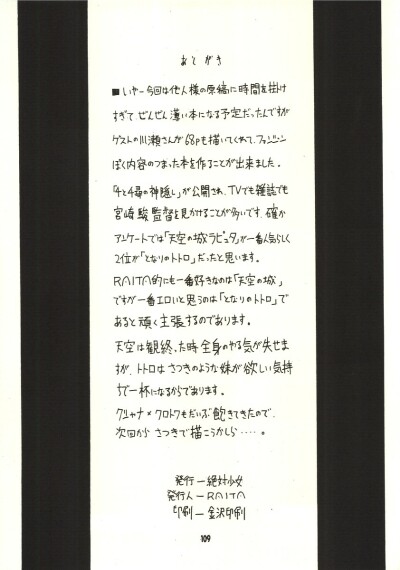 あとがき
■いやー今回は他人様の原稿に時間を掛け
すぎて、ぜんぜん薄い本になる予定だったんですが
ゲストの川瀬さんが68pも描いてくれて、ファンジン
ぽく内容のつまった本を作ることが出来ました。
「千と千尋の神隠し」が公開され、TVでも雑誌でも
宮崎駿監督を見かけることが多いです。確か
アンケートでは「天空の城ラピュタ」が一番人気らしく
2位が「となりのトトロ」だったと思います。
RAITA的にも一番好きなのは「天空の城」
ですが一番エロいと思うのは「となりのトトロ」で
あると頑く主張するのであります。
天空は観終った時全身のやる気が失せま
すが、トトロはさつきのような妹が欲しい気持
ちで一杯になるからであります。
クシャナ×クロトワもだいぶ飽きてきたので、
次回から さつきで描こうかしら‥‥。
発行―絶対少女
発行人―RAITA
印刷―金沢印刷
109